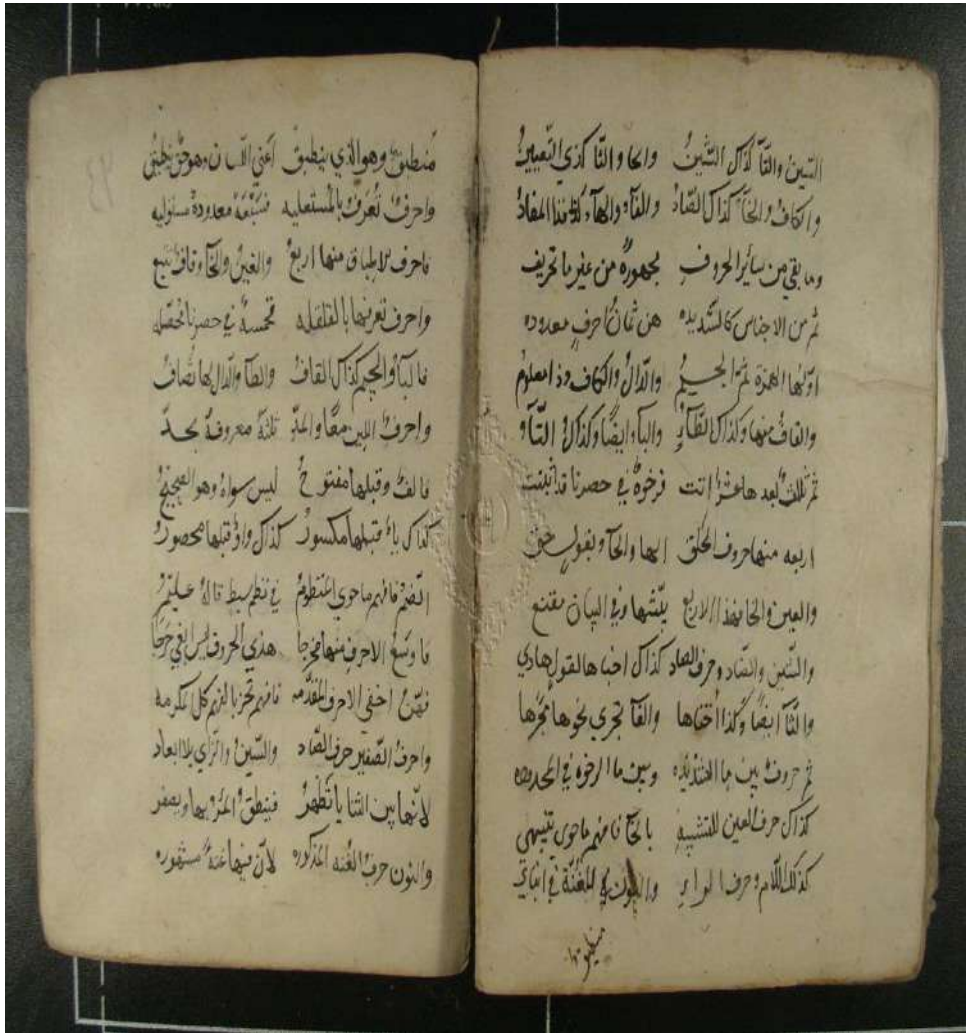 السين والتا كذاك الشين والحا والثا كذي التعيين
والكاف والخآ كذاك الصاد والفآء والهآء هذا المفاد
وما بقي من سائر الحروف مجهورة من غير ما تحريف
ثم من الاجناس كالشديده هن ثمان احرف معدوده
اولها الهمزة ثم الجيم والدال والكاف وذا معلوم
والقاف منها وكذاك الطآء والبآء ايضا وكذاك التآء
ثم ثلث بعدها عشر اتت فرخوة في حصرنا قد اثبتت
اربعه منها حروف الحلق الها والحآ وبقول حق
والغين والخا فهذا الاربع وفي البيان مقنع
والشين والضاد وحرف الصاد كذاك لقول هادي
والثآ ايضا وكذا والفآ تجري نحوها مجرها
ثم حروف بين ما الشديده وبين ما الرخوة في المحدوده
كذاك حرف العين للتشبيه بالحآ فافهم ما حوى تنبيهي
كذلك اللام وحرف الراء والنون للغنة في
منطبق
منطبق وهو الذي ينطبق اعني اللسان وهو حق
واحرف تعرف بالمستعليه فسبعة معدودة مستوليه
فاحرف الاطباق منها اربع والغين والخآء وقاف تتبع
واحرف تعرفها بالقلقله فخمسة في حصرنا محصله
فالبآء والجيم كذاك القاف والطآء والدال بها تضاف
واحرف اللين معا والمد ثلثة معروفة بحد
فالف وقبلها مفتوح ليس سواه وهو الصحيح
كذاك ياء قبلها مكسور كذاك واو قبلها محصور
الضم فافهم ما حوى المنظوم في نظم بسط قاله عليم
فاوسع الاحرف منها مخرجا هذي الحروف ليس ابغي حرجا
فهن اخفى الاحرف المقدمه فافهم تحز بالفهم كل المكرمه
واحرف الصفير حرف الصاد والسين والزاي بلا ابعاد
لانها بين الثنايا تظهر فينطق المرء بها ويصفر
والنون حرف الغنه المذكوره لان فيها غنة مشهوره